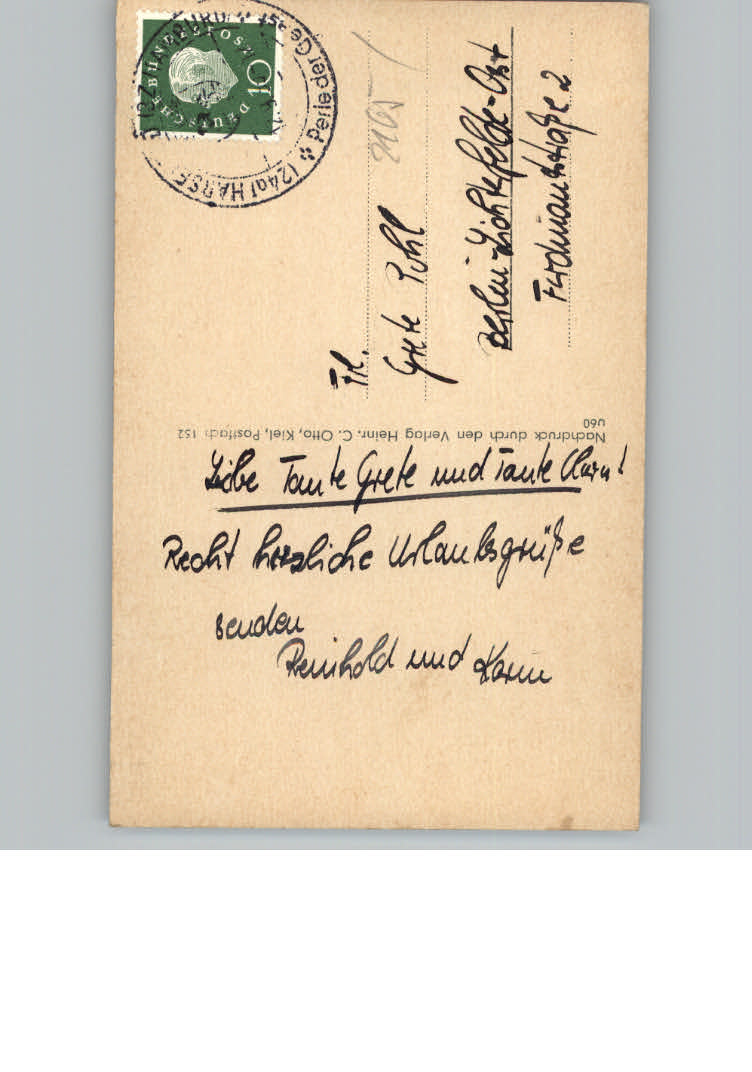 Liebe Tante Grete und Tante
Recht herzliche Urlaubsgrüße
senden
Reinhold und Karin
Frl.
Grete Pohl
Berlin-Lichtefelde-Ost
Ferdinandstraße 2
2165
Nachdruck durch den Verlag Heinr. C. Otto, Kiel, Postfach 152
U60
DEUTSCHE BUNDESPOST
10
(24a) HARSE
Perle der